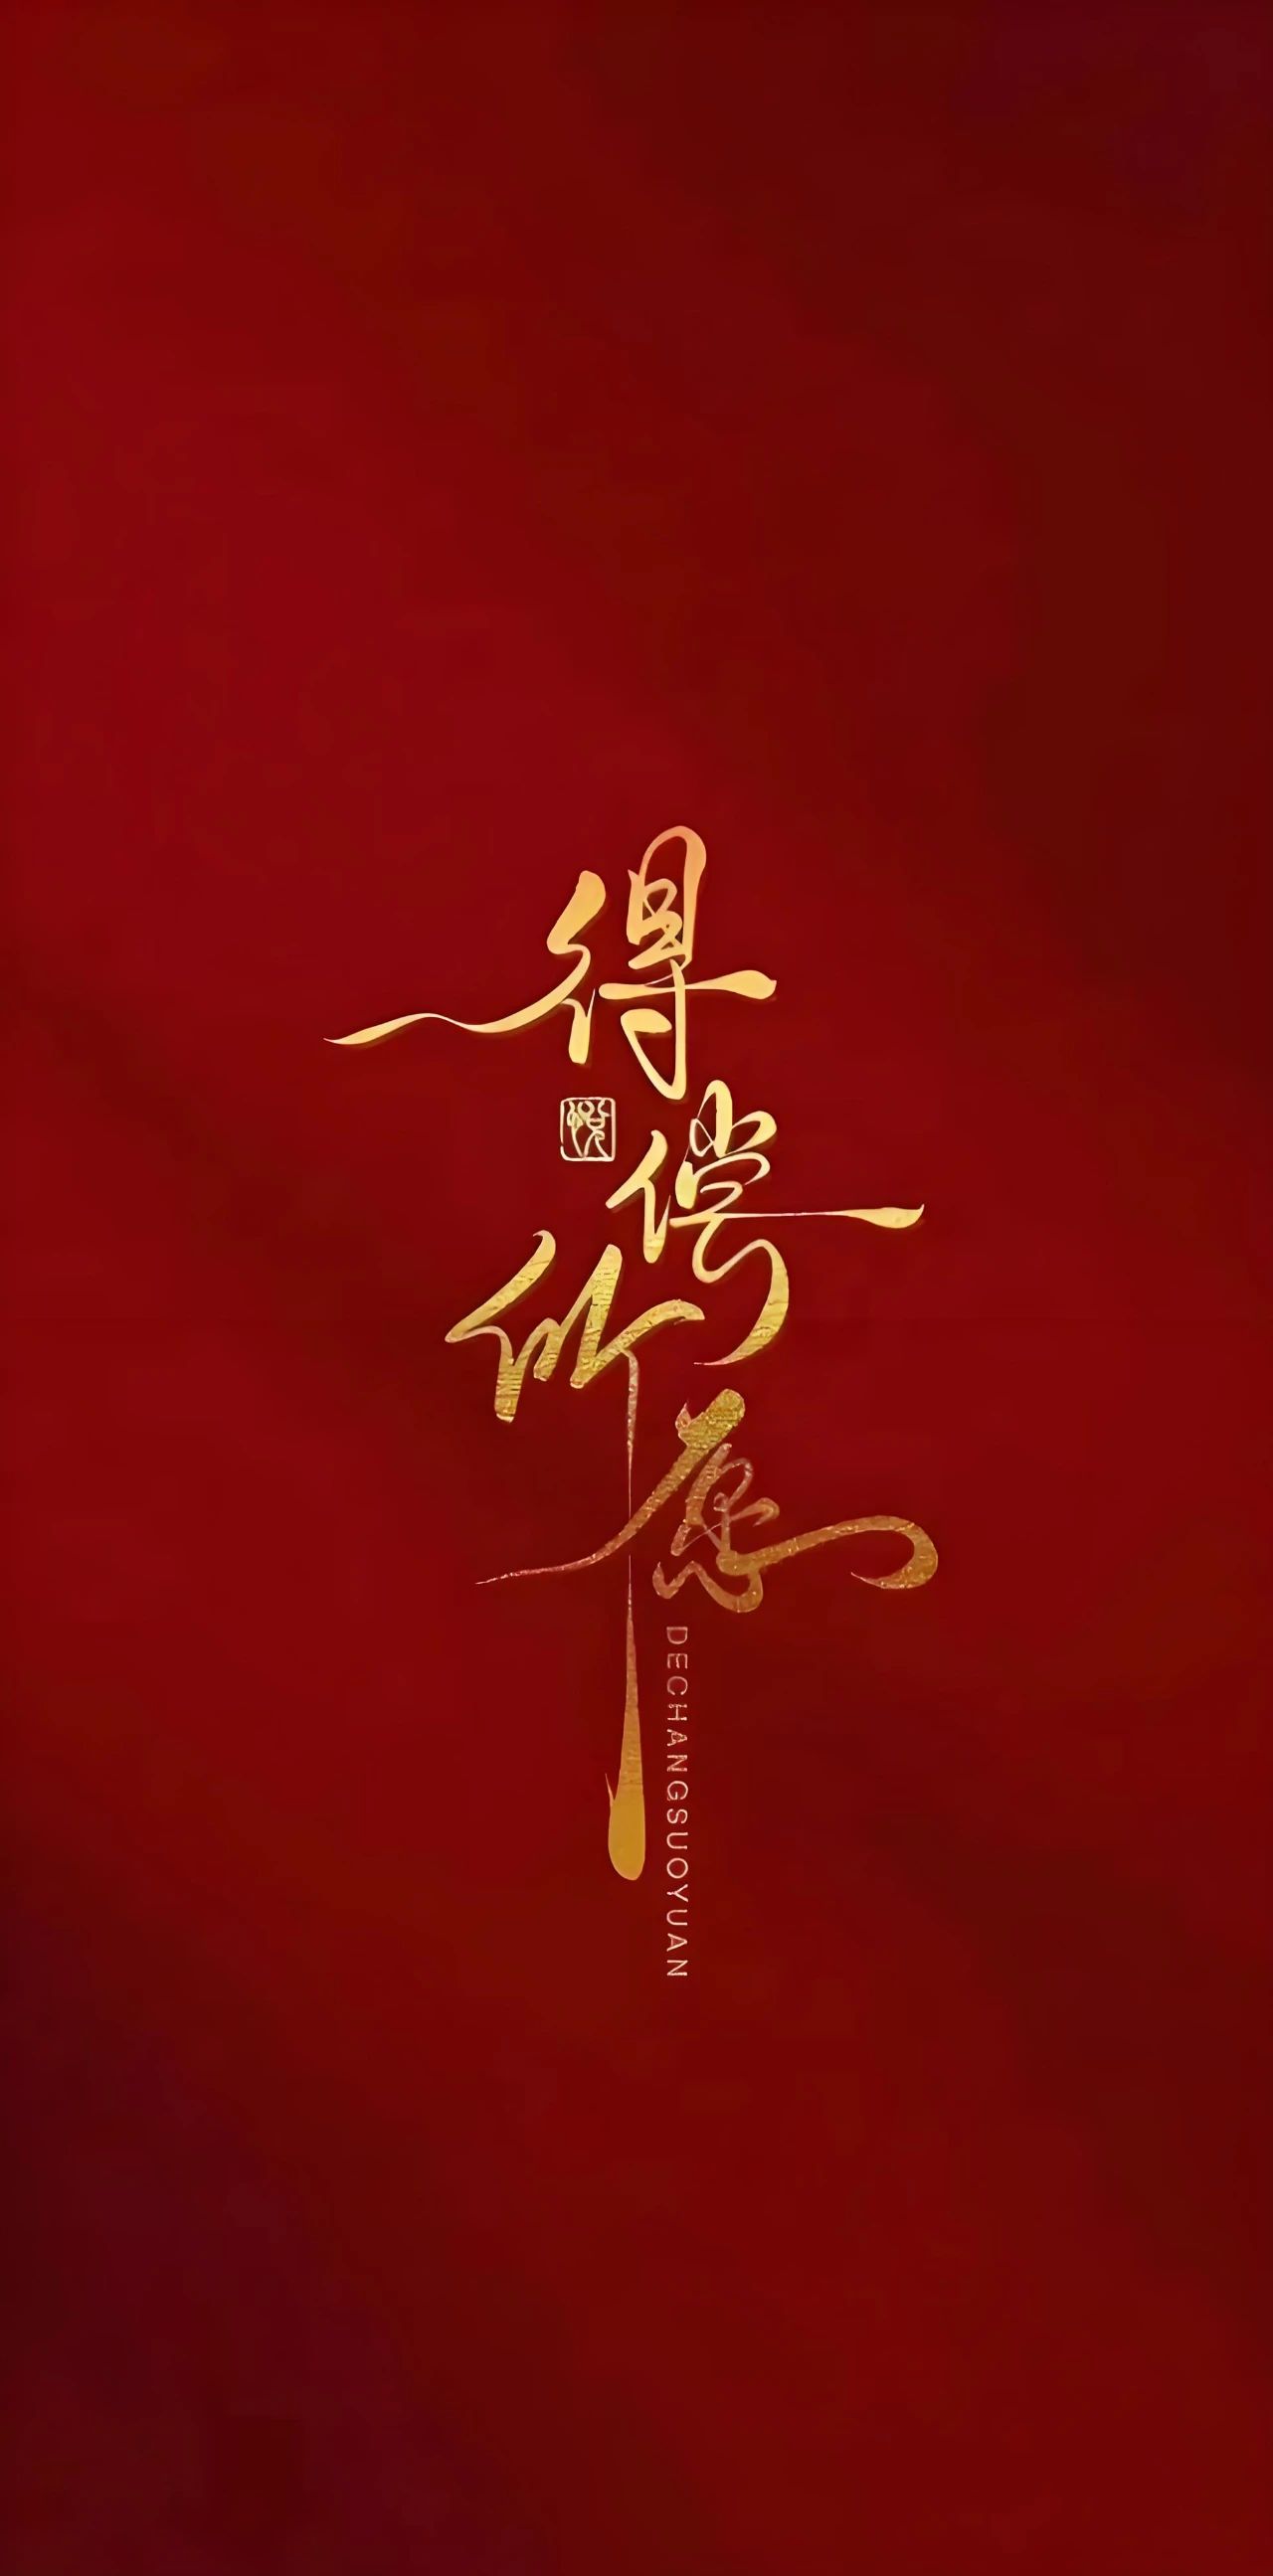 得偿所愿
悦
DECHANGSUOYUAN